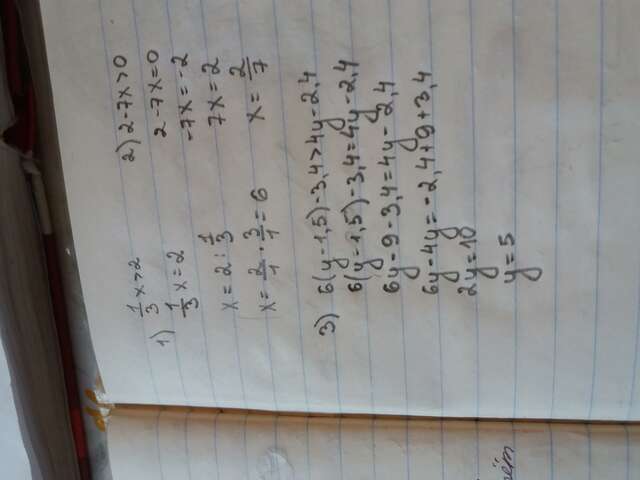 1) 1/3 x > 2
1/3 x = 2
x = 2 : 1/3
x = 2/1 · 3/1 = 6
2) 2 - 7x > 0
2 - 7x = 0
-7x = -2
7x = 2
x = 2/7
3) 6(y - 1,5) - 3,4 > 4y - 2,4
6(y - 1,5) - 3,4 = 4y - 2,4
6y - 9 - 3,4 = 4y - 2,4
6y - 4y = -2,4 + 9 + 3,4
2y = 10
y = 5